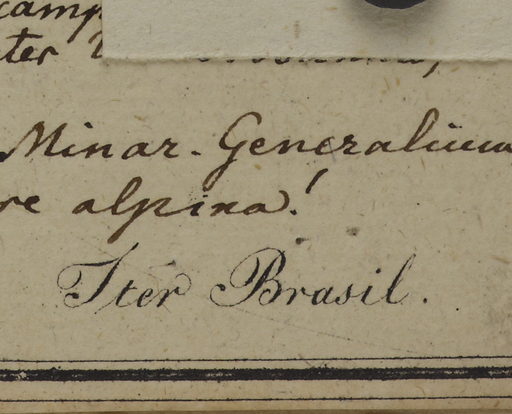 camp
ter
Minar. Generalium
re alpina!
Iter Brasil.